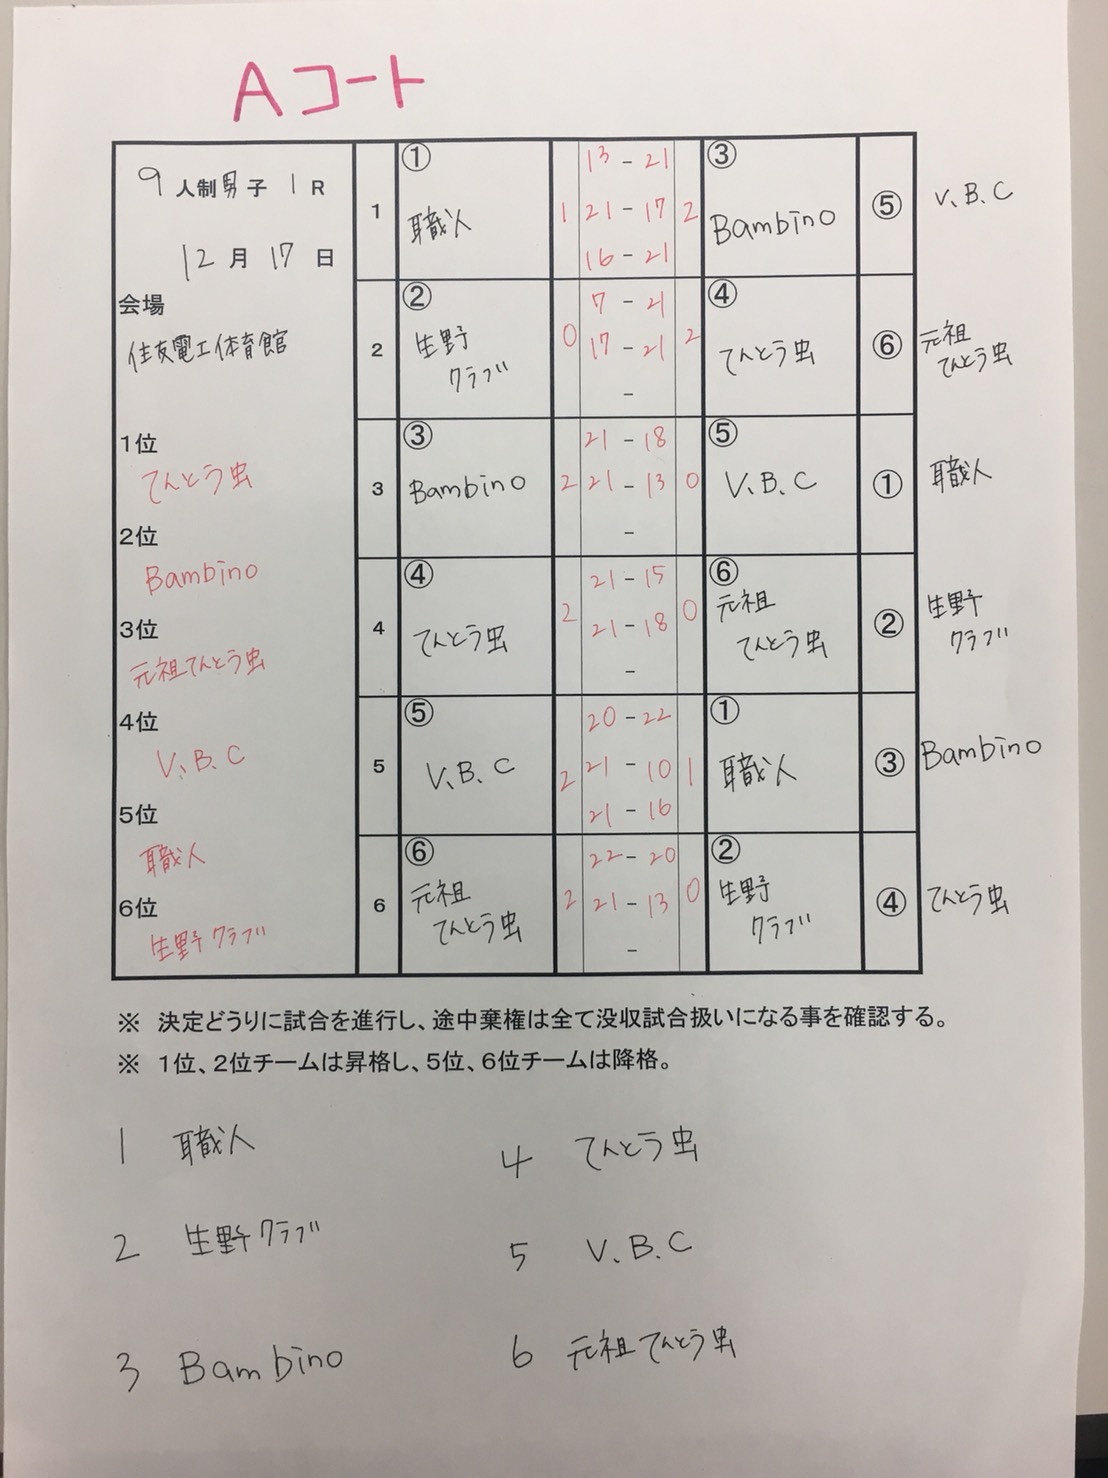 Aコート
9人制男子 1R
12月17日
会場
住友電工体育館
1位
てんとう虫
2位
Bambino
3位
元祖てんとう虫
4位
V.B.C
5位
職人
6位
生野クラブ
1
①
職人
1
13 - 21
21 - 17
16 - 21
2
③
Bambino
⑤
V.B.C
2
②
生野
クラブ
0
7 - 21
17 - 21
-
2
④
てんとう虫
⑥
元祖
てんとう虫
3
③
Bambino
2
21 - 18
21 - 13
-
0
⑤
V.B.C
①
職人
4
④
てんとう虫
2
21 - 15
21 - 18
-
0
⑥
元祖
てんとう虫
②
生野
クラブ
5
⑤
V.B.C
2
20 - 22
21 - 10
21 - 16
1
①
職人
③
Bambino
6
⑥
元祖
てんとう虫
2
22 - 20
21 - 13
-
0
②
生野
クラブ
④
てんとう虫
※ 決定どうりに試合を進行し、途中棄権は全て没収試合扱いになる事を確認する。
※ 1位、2位チームは昇格し、5位、6位チームは降格。
1 職人
2 生野クラブ
3 Bambino
4 てんとう虫
5 V.B.C
6 元祖てんとう虫